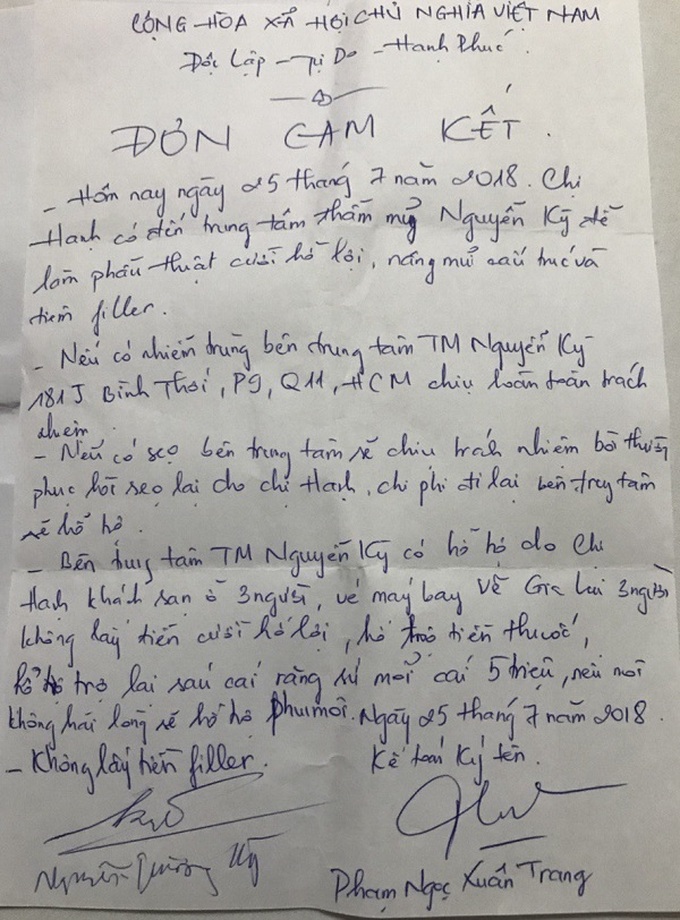 CỘNG HÒA XÃ HỘI CHỦ NGHĨA VIỆT NAM
Độc Lập - Tự Do - Hạnh Phúc.
ĐƠN CAM KẾT.
- Hôm nay ngày 25 tháng 7 năm 2018. Chị
Hạnh có đến trung tâm thẩm mỹ Nguyễn Kỹ để
làm phẩu thuật cười hở lợi, nâng mũi cấu trúc và
tiêm filler.
- Nếu có nhiểm trùng bên trung tâm TM Nguyễn Kỹ
181J Bình Thới, P9, Q11, HCM chịu hoàn toàn trách
nhiệm.
- Nếu có sẹo bên trung tâm sẽ chịu trách nhiệm bồi thường
phục hồi sẹo lại cho chị Hạnh, chi phí đi lại bên trung tâm
sẽ hổ hộ.
- Bên trung tâm TM Nguyễn Kỹ có hổ hộ do Chị
Hạnh khách sạn ở 3 người, vé máy bay về Gia Lai 3 người
không lấy tiền cười hở lợi, hổ trợ tiền thuốc,
hổ trợ lại sáu cái răng sứ mỗi cái 5 triệu, nếu môi
không hài lòng sẽ hổ hộ phun môi. Ngày 25 tháng 7 năm 2018.
- Không lấy tiền filler.
Kế toán Ký tên.
Nguyễn Kỹ
Phạm Ngọc Xuân Trang